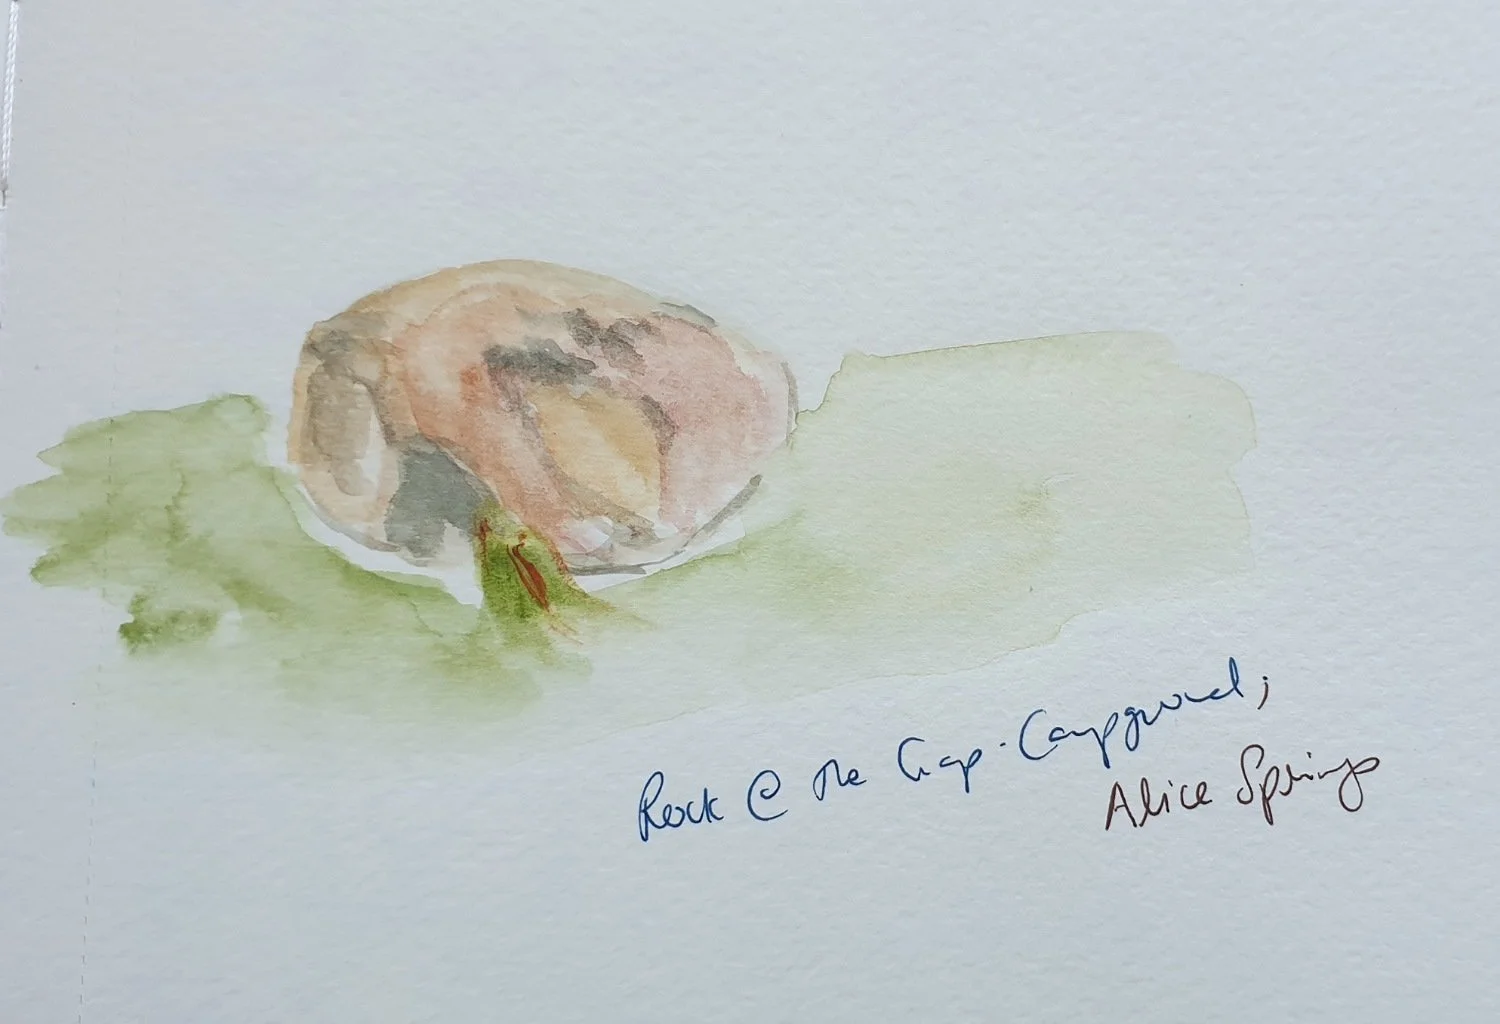 Rock @ the Gap-Campground;
Alice Springs